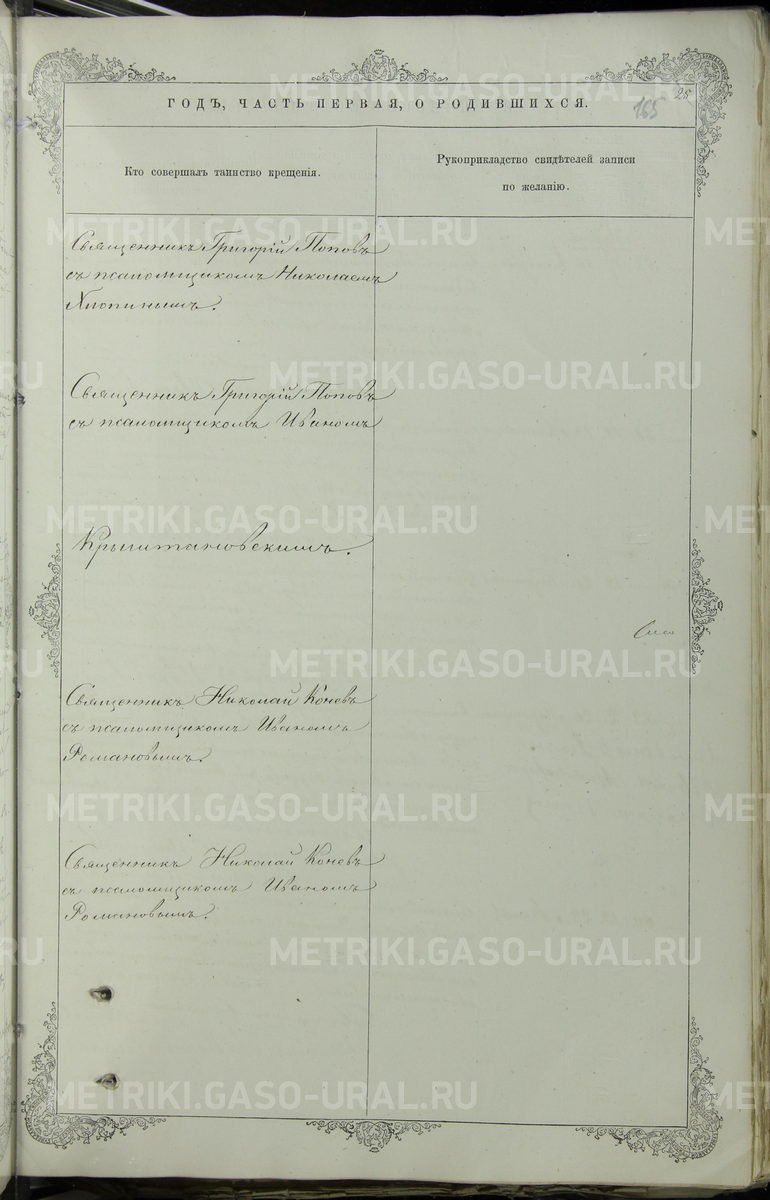 ГОДЪ, ЧАСТЬ ПЕРВАЯ, О РОДИВШИХСЯ.
165
25
Кто совершалъ таинство крещенія.
Рукоприкладство свидѣтелей записи
по желанію.
Священникъ Григорій Поповъ
съ псаломщикомъ Николаемъ
Хлопинымъ.
Священникъ Григорій Поповъ
съ псаломщикомъ Иваномъ
Крыштановскимъ.
Священникъ Николай Коневъ
съ псаломщикомъ Иваномъ
Романовымъ.
Священникъ Николай Коневъ
съ псаломщикомъ Иваномъ
Романовымъ.
METRIKI.GASO-URAL.RU